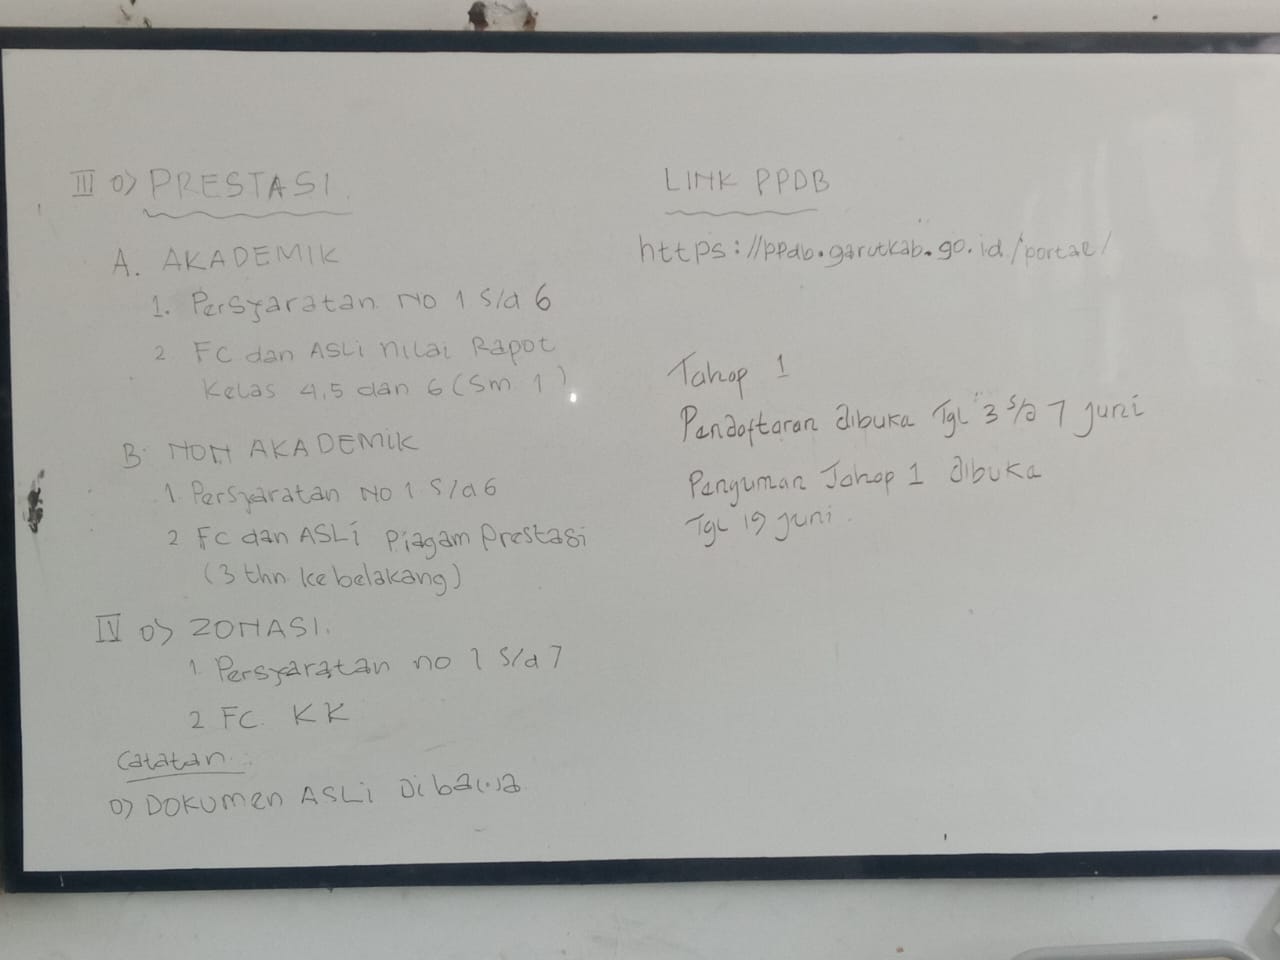 III o) PRESTASI.
A. AKADEMIK
1. Persyaratan No 1 S/d 6
2 FC dan ASLi nilai Rapot
Kelas 4,5 dan 6 (Sm 1)
B. NON AKADEMIK
1. Persyaratan No 1 S/d 6
2 Fc dan ASLi Piagam Prestasi
(3 thn ke belakang)
IV o) ZONASI.
1. Persyaratan no 1 S/d 7
2 FC. KK
Catatan :
o) DOKUMEN ASLi Dibawa
LINK PPDB
https://ppdb.garutkab.go.id/portal/
Tahap 1
Pendaftaran dibuka Tgl 3 s/d 7 juni
Penguman Tahap 1 dibuka
Tgl 19 juni.